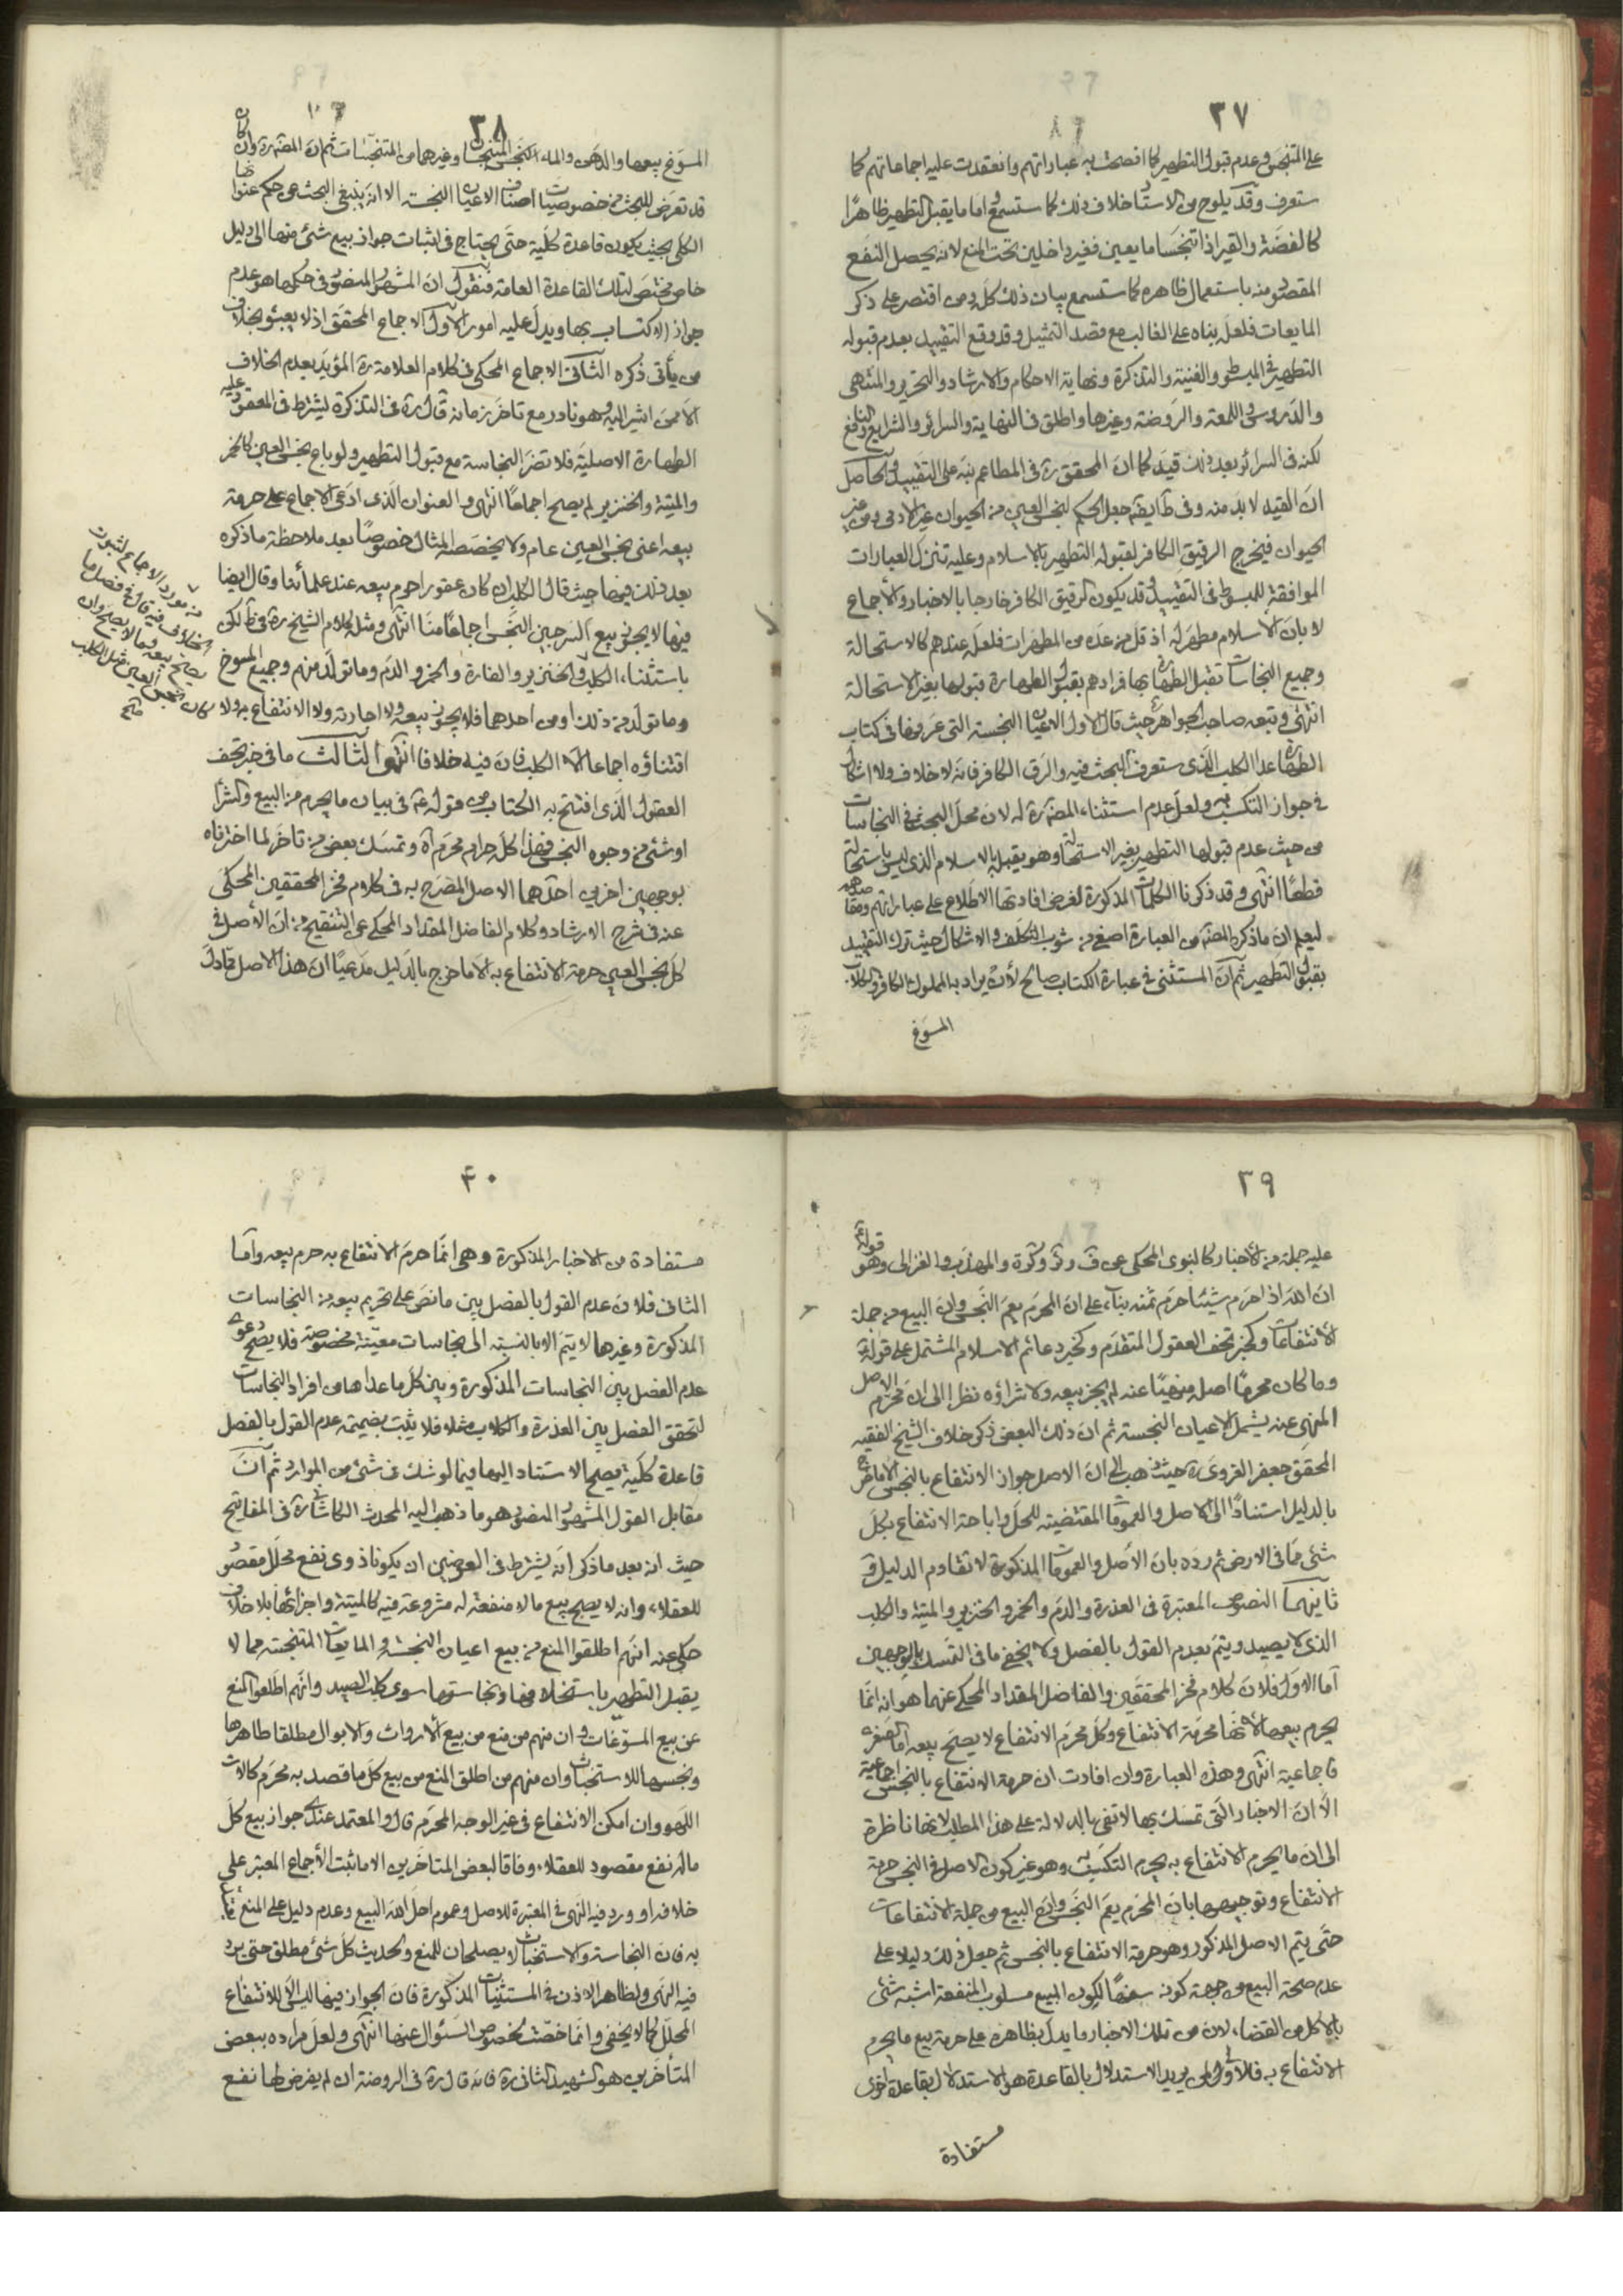 ٣٧
على المتنجس وعدم قبول التطهير كما افصحت به عباراتهم وانعقدت عليه اجماعاتهم كما
ستعرف وقد يلوح من الاستاد خلاف ذلك كما ستسمع اما ما يقبل التطهير ظاهرًا
كالفضة والقير اذا تنجسا مايعين فغير داخلين تحت المنع لانه يحصل النفع
المقصود منه باستعمال ظاهره كما ستسمع بيان ذلك كله ومن اقتصر على ذكر
المايعات فلعله بناه على الغالب مع قصد التمثيل وقد وقع التقييد بعدم قبوله
التطهير في المبسوط والغنية والتذكرة ونهاية الاحكام والارشاد والتحرير والمنتهى
والدروس واللمعة والروضة وغيرها واطلق في النهاية والسرائر والشرايع والنافع
لكنه في السرائر بعد ذلك قيد كما ان المحقق ره في المطاعم نبه على التقييد والحاصل
ان القيد لابد منه وفي طايفة جعل الحكم لنجس العين من الحيوان غير الادمي ومن غير
الحيوان فيخرج الرقيق الكافر لقبوله التطهير بالاسلام وعليه تنزل العبارات
الموافقة للمبسوط في التقييد وقد يكون الرقيق الكافر خارجا بالاخبار والاجماع
لا بان الاسلام مطهر له اذ قل من عده من المطهرات فلعله عندهم كالاستحالة
وجميع النجاسات تقبل الطهارة بها فمرادهم بقبول الطهارة قبولها بغير الاستحالة
انتهى وتبعه صاحب الجواهر ره حيث قال الاول الاعيان النجسة التي عرفوها في كتاب
الطهارة عدا الكلب الذي ستعرف البحث فيه والرق الكافر فانه لا خلاف ولا اشكال
في جواز التكسب به ولعل عدم استثناء المصنف ره له لان محل البحث هنا في النجاسات
من حيث عدم قبولها التطهير بغير الاستحالة وهو يقبله بالاسلام الذي ليس باستحالة
قطعًا انتهى وقد ذكرنا الكلمات المذكورة لغرض افادتها الاطلاع على عباراتهم ومقاصدهم
ليعلم ان ما ذكره المصنف من العبارة اصفى من شوب التكلف والاشكال حيث ترك التقييد
بقبول التطهير ثم ان المستثنى في عبارة الكتاب صالح لأن يراد به المملوك الكافر والكلاب
المسوغ
٣٨
المسوغ بيعها والدهن والماء النجس المتنجسا وغيرهما من المتنجسات ثم ان المصنف ره وان كان
قد تعرض للبحث من خصوصيات اصناف الاعيان النجسة الا انه ينبغي البحث عن حكم عنوانها
الكلي بحيث يكون قاعدة كلية حتى يحتاج في اثبات جواز بيع شئ منها الى دليل
خاص مختص لتلك القاعدة العامة فنقول ان المشهور المنصور في حكمها هو عدم
جواز الاكتساب بها ويدل عليه امور الأول الاجماع المحقق اذ لا يعبئو بخلاف
من يأتي ذكره الثاني الاجماع المحكي في كلام العلامة ره المؤيد بعدم الخلاف
الا ممن اشير اليه وهو نادر مع تاخر زمانه قال ره في التذكرة يشترط في المعقود عليه
الطهارة الاصلية فلا تضر النجاسة مع قبول التطهير ولو باع نجس العين كالخمر
والميتة والخنزير لم يصح اجماعًا انتهى والعنوان الذي ادعى الاجماع على حرمة
بيعه اعني نجس العين عام ولا يخصصه المثال خصوصًا بعد ملاحظة ما ذكره
بعد ذلك فيها حيث قال الكلب ان كان عقورا حرم بيعه عند علمائنا وقال ايضا
فيها لا يجوز بيع السرجين النجس اجماعًا منا انتهى ومثله كلام الشيخ ره في ف لكن
باستثناء الكلب والخنزير والفارة والخمر والدم وما تولد منهم وجميع المسوخ
وما تولد من ذلك او من احدهما فلا يجوز بيعه ولا اجارته ولا الانتفاع به ولا
اقتناؤه اجماعا الا الكلب فان فيه خلافا انتهى الثالث ما في خبر تحف
العقول الذي افتتح به الكتاب من قوله ع في بيان ما يحرم من البيع والشراء
او شئ من وجوه النجس فهذا كله حرام محرم اه وتمسك بعض من تاخر لما اخترناه
بوجهين اخرين احدهما الاصل المصرح به في كلام فخر المحققين المحكي
عنه في شرح الارشاد وكلام الفاضل المقداد المحكي عن التنقيح من ان الأصل في
كل نجس العين حرمة الانتفاع به الا ما خرج بالدليل مدعيًا ان هذا الاصل مما دل
من مورد الاجماع لثبوت
الخلاف فيه قال في فصل ما
يصح بيعه وما لا يصح وان
كان نجس العين مثل الكلب
صح
٣٩
عليه جملة من الأخبار كالنبوي المحكي عن ف و ئر و كرة والمهذب والغزالي وهو قوله
ان الله اذا حرم شيئًا حرم ثمنه بناء على ان المحرم يعم النجس وان البيع من جملة
الانتفاعات وكخبر تحف العقول المتقدم وكخبر دعائم الاسلام المشتمل على قوله ع
وما كان محرمًا اصله منهيًا عنه لم يجز بيعه ولا شراؤه نظرا الى ان محرم الاصل
المنهي عنه يشمل الاعيان النجسة ثم ان ذلك البعض ذكر خلاف الشيخ الفقيه
المحقق جعفر الغروي ره حيث ذهب الى ان الاصل جواز الانتفاع بالنجس الا ما خرج
بالدليل استنادًا الى الاصل والعمومات المقتضية للحل واباحة الانتفاع بكل
شئ مما في الارض ثم رده بان الأصل والعمومات المذكورة لا تقاوم الدليل و
ثانيهما النصوص المعتبرة في العذرة والدم والخمر والخنزير والميتة والكلب
الذي لا يصيد ويتم بعدم القول بالفصل ولا يخفى ما في التمسك بالوجهين
اما الاول فلان كلام فخر المحققين والفاضل المقداد المحكي عنهما هو انه انما
يحرم بيعها لأنها محرمة الانتفاع وكل محرم الانتفاع لا يصح بيعه اما الصغرى
فاجماعية انتهى وهذه العبارة وان افادت ان حرمة الانتفاع بالنجس اجماعية
الا ان الاخبار التي تمسك بها لا تفي بالدلالة على هذا المطلب لانها ناظرة
الى ان ما يحرم الانتفاع به يحرم التكسب به وهو غير كون الاصل في النجس حرمة
الانتفاع وتوجيهها بان المحرم يعم النجس وان البيع من جملة الانتفاعات
حتى يتم الاصل المذكور وهو حرمة الانتفاع بالنجس ثم جعل ذلك دليلا على
عدم صحة البيع من جهة كونه سفهًا لكون المبيع مسلوب المنفعة اشبه شئ
بالاكل من القفا، لان من تلك الاخبار ما يدل بظاهره على حرمة بيع ما يحرم
الانتفاع به فالأولى لمن يريد الاستدلال بالقاعدة هو الاستدلال بقاعدة اخرى
مستفادة
٤٠
مستفادة من الاخبار المذكورة وهي انما حرم الانتفاع به حرم بيعه واما
الثاني فلان عدم القول بالفصل بين ما نص على تحريم بيعه من النجاسات
المذكورة وغيرها لا يتم الا بالنسبة الى نجاسات معينة مخصوصة فلا يصح دعوى
عدم الفصل بين النجاسات المذكورة وبين كل ما عداها من افراد النجاسات
لتحقق الفصل بين العذرة والكلاب مثلا فلا يثبت بضميمة عدم القول بالفصل
قاعدة كلية يصح الاستناد اليها فيما لو شك في شئ من الموارد ثم ان
مقابل القول المشهور المنصور هو ما ذهب اليه المحدث الكاشاني ره في المفاتيح
حيث انه بعد ما ذكر انه يشترط في العوضين ان يكونا ذوي نفع محلل مقصود
للعقلاء، وانه لا يصح بيع ما لا منفعة له مشروعة فيه كالميتة واجزائها بلا خلاف
حكى عنه انهم اطلقوا المنع من بيع اعيان النجسة والمايعات المتنجسة مما لا
يقبل التطهير باستخلافها ونجاستها سوى كلب الصيد وانهم اطلقوا المنع
عن بيع المسوغات وان منهم من منع من بيع الأرواث والابوال مطلقا طاهرها
ونجسها للاستخباث وان منهم من اطلق المنع من بيع كل ما قصد به محرم كالات
اللهو وان امكن الانتفاع في غير الوجه المحرم قال والمعتمد عندي جواز بيع كل
ماله نفع مقصود للعقلاء، وفاقا لبعض المتاخرين الا ما ثبت الأجماع المعتبر على
خلافه او ورد فيه النهي في المعتبرة للاصل وعموم احل الله البيع وعدم دليل على المنع
به فان النجاسة والاستخباث لا يصلحان للمنع ولحديث كل شئ مطلق حتى يرد
فيه النهي ولظاهر الاذن في المستثنيات المذكورة فان الجواز فيها ليس الا للانتفاع
المحلل كما لا يخفى وانما خصت لخصوص السئوال عنها انتهى ولعل مراده ببعض
المتأخرين هو الشهيد الثاني ره فانه قال ره في الروضة ان لم يفرض لها نفع